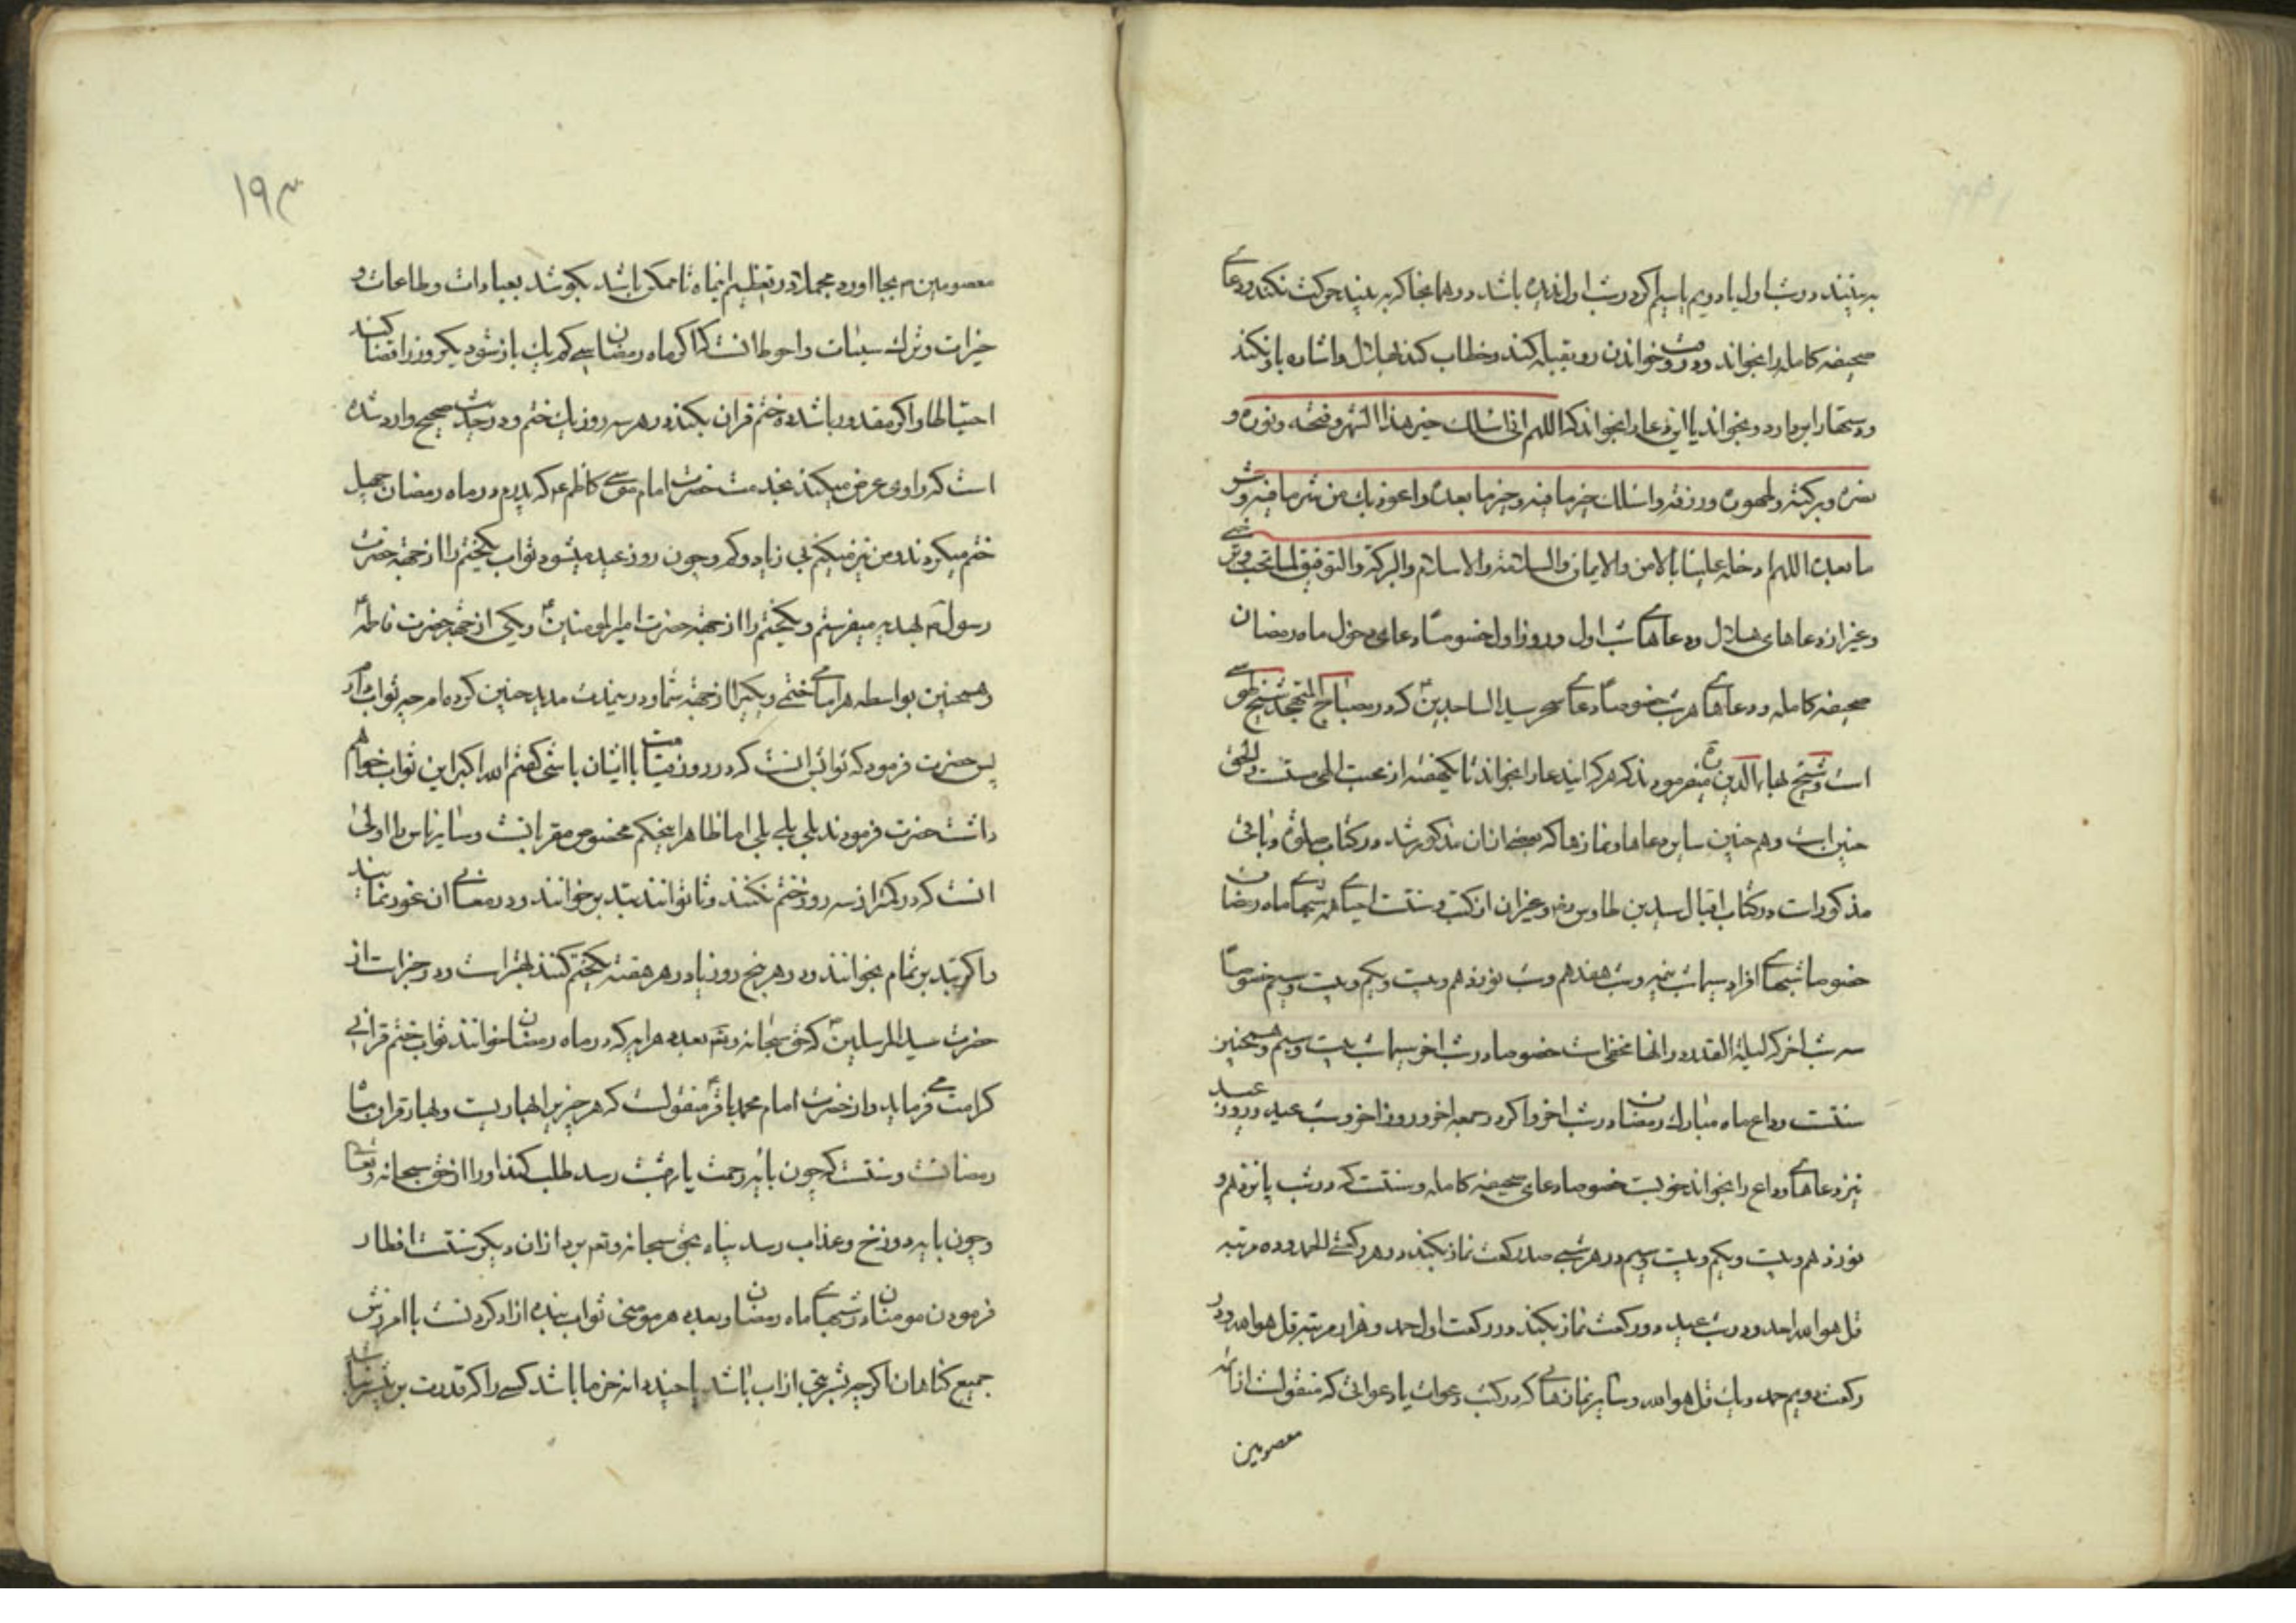 به بینند در شب اول یا دویم یا سیم اکر در شب اول ندیده باشد و در همانجا که به بیند حرکت نکند و دعای
صحیفه کامله را بخواند و در وقت خواندن رو بقبله کند و خطاب کند بهلال و اشاره باو نکند
و دستها را بردارد و بخواند یا این دعا را بخواند که اللهم انی اسئلک خیر هذا الشهر و فتحه و نوره و
نصره و برکته و طهوره و رزقه و اسئلک خیر ما فیه و خیر ما بعده و اعوذ بک من شر ما فیه و شر
ما بعده اللهم ادخله علینا بالامن و الایمان و السلامة و الاسلام و البرکة و التوفیق لما تحب و ترضی
و غیر ان دعاهای هلال و دعاهای شب اول و روز اول خصوصا دعای دخول ماه رمضان
صحیفه کامله و دعاهای هر شب خصوصا دعای سحر سید الساجدین ع که در مصباح المتهجد شیخ طوسی
است و شیخ بهاء الدین ره میفرمودند که هر که ایندعا را بخواند تا یکهفته از محبت الهی مست و الحق
چنین است و هم چنین سایر دعاها و نمازها که بعضی از ان مذکور شد در کتاب صلوة و باقی
مذکور است در کتاب اقبال سید بن طاوس رضه و غیر ان از کتب و سنتست احیای همه شبهای ماه رمضان
خصوصا شبهای افراد سیما شب نیمه و شب هفدهم و شب نوزدهم و بیست و یکم و بیست و سیم خصوصا
سه شب اخر که لیلة القدر در انها مخفی است خصوصا در شب اخر سیما شب بیست و سیم و همچنین
سنتست وداع ماه مبارک رمضان در شب اخر و اکر در جمعه اخر و روز اخر و شب عید و روز عید
نیز دعاهای وداع را بخواند خوبست خصوصا دعای صحیفه کامله و سنتست که در شب پانزدهم و
نوزدهم و بیست و یکم و بیست و سیم در هر شبی صد رکعت نماز بکند در هر رکعتی الحمد و ده مرتبه
قل هو الله احد و در شب عید دو رکعت نماز بکند در رکعت اول حمد و هزار مرتبه قل هو الله و در
رکعت دویم حمد و یک قل هو الله و سایر نمازهای که در کتب دعوات یا دعواتی که منقولست از ائمه
معصومین
۱۹۳
معصومین م بجا اورد مجملا در تعظیم اینماه تا ممکن باشد بکوشد بعبادات و طاعات و
خیرات و ترک سیئات و احوط انست که اکر ماه رمضان سی کم یک باز شود یکروز را قضا کنند
احتیاطا و اکر مقدور باشد ده ختم قران بکند در هر سه روز یک ختم و در حدیث صحیح وارد شده
است که راوی عرض میکند بخدمت حضرت امام موسی کاظم ع که پدرم در ماه رمضان چهل
ختم میکردند و من نیز میکنم بی زیاد و کم و چون روز عید میشود ثواب یکختم را از جهة حضرت
رسول م بهدیه میفرستم و یکختم را از جهة حضرت امیر المومنین ع و یکی از جهة حضرت فاطمه ع
و همچنین بواسطه هر امامی ختمی و یکی را از جهة شما و در ینمدت مدید چنین کرده ام چه ثواب دارد
پس حضرت فرمود که ثوابش انست که در روز قیامت با ایشان باشی کفتم الله اکبر این ثواب خواهم
داشت حضرت فرمودند بلی بلی بلی اما ظاهرا اینحکم مخصوص مقربانست و سایر ناس را اولی
انست که در کمتر از سه روز ختم نکنند و تا توانند بتدبر خوانند و در معانی ان غور نمایند
و اکر بتدبر تمام بخوانند و در هر پنج روز یا در هر هفته یکختم کنند بهتر است و در خبر است از
حضرت سید المرسلین ص که حق سبحانه و تعه بعدد هر ایه که در ماه رمضان خوانند ثواب ختم قرانی
کرامت می فرماید و از حضرت امام محمد باقر ع منقولست که هر چیز را بهاریست و بهار قران ماه
رمضانست و سنتست که چون بایه رحمت یا بهشت رسد طلب کند او را از حق سبحانه و تعالی
و چون بایه دوزخ و عذاب رسد پناه بحق سبحانه و تعه برد از ان و دیکر سنتست افطار
فرمودن مومنان در شبهای ماه رمضان و بعدد هر مومنی ثواب بنده ازاد کردنست با امرزش
جمیع کناهان اکر چه بشربتی از اب باشد یا چند دانه خرما باشد کسی را که قدرت بر بیشتر نباشد